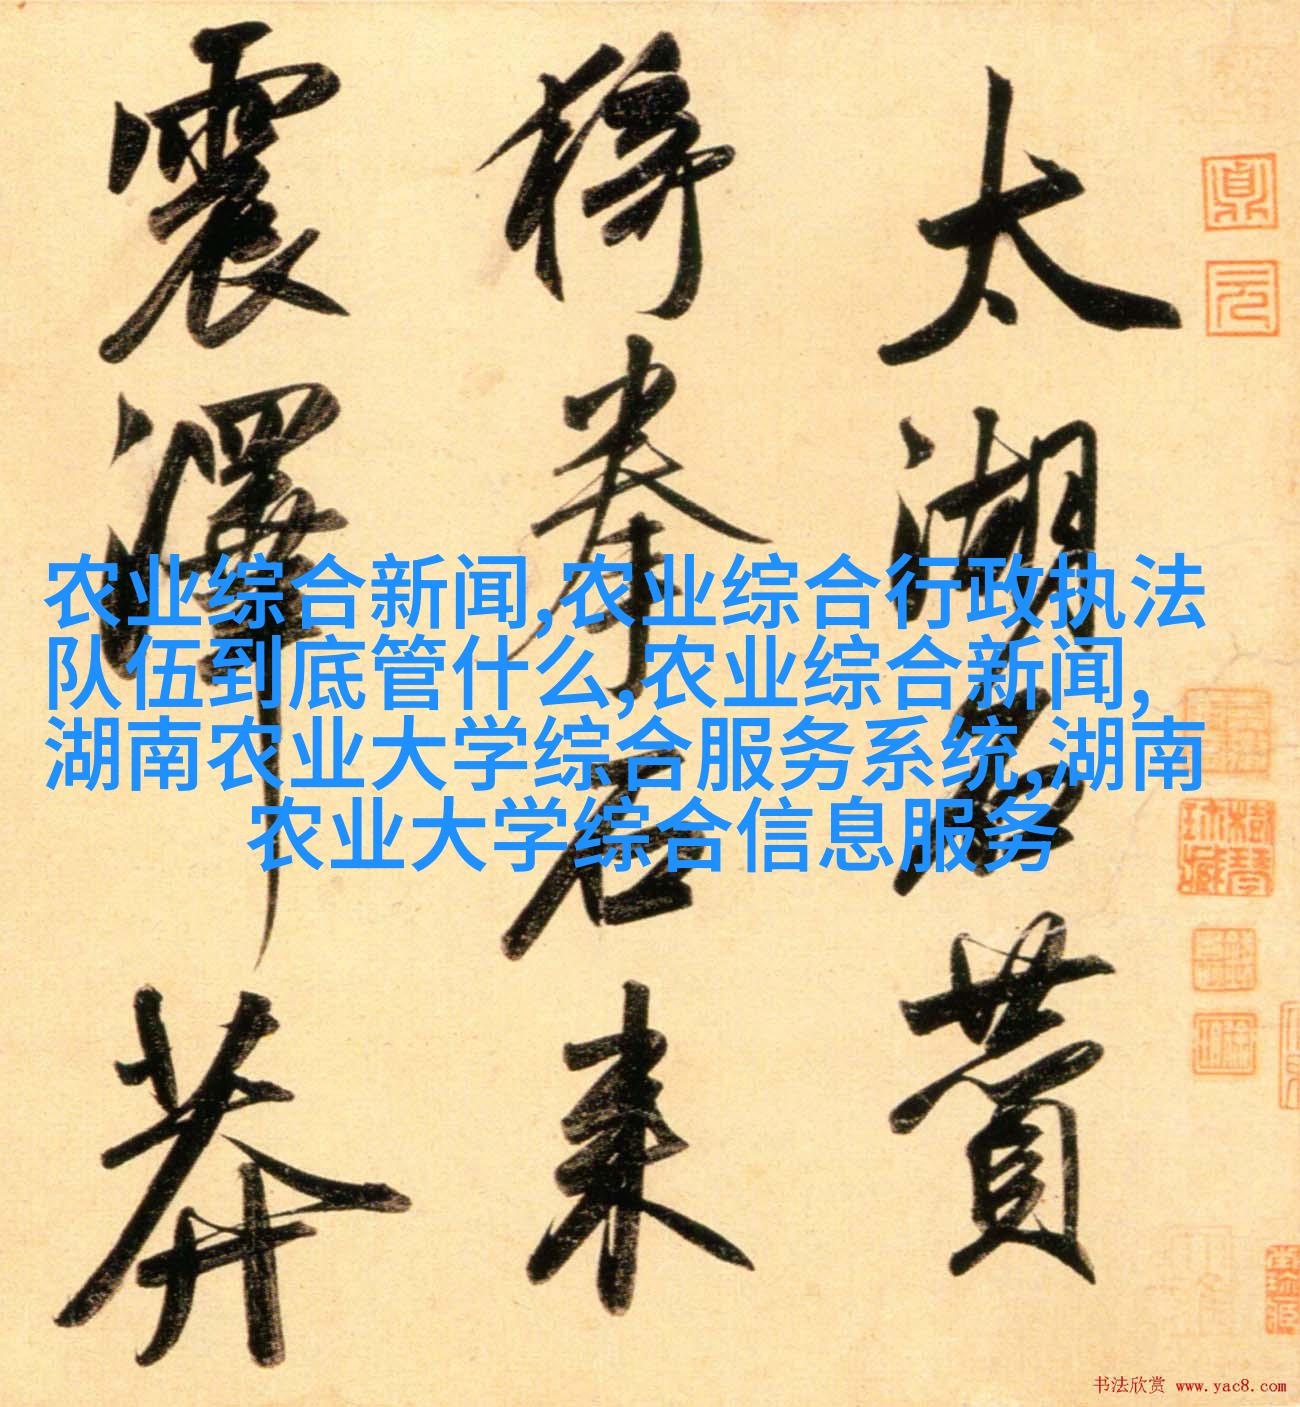 太湖石賛
猗拳石来
震澤莽
农业综合新闻,农业综合行政执法
队伍到底管什么,农业综合新闻,
湖南农业大学综合服务系统,湖南
农业大学综合信息服务
书法欣赏 www.yac8.com